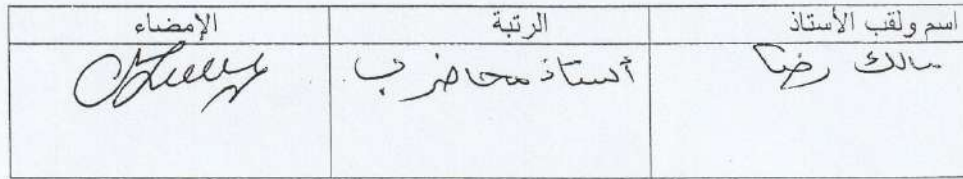 اسم ولقب الأستاذ الرتبة الإمضاء
مالك رضا أستاذ محاضر ب